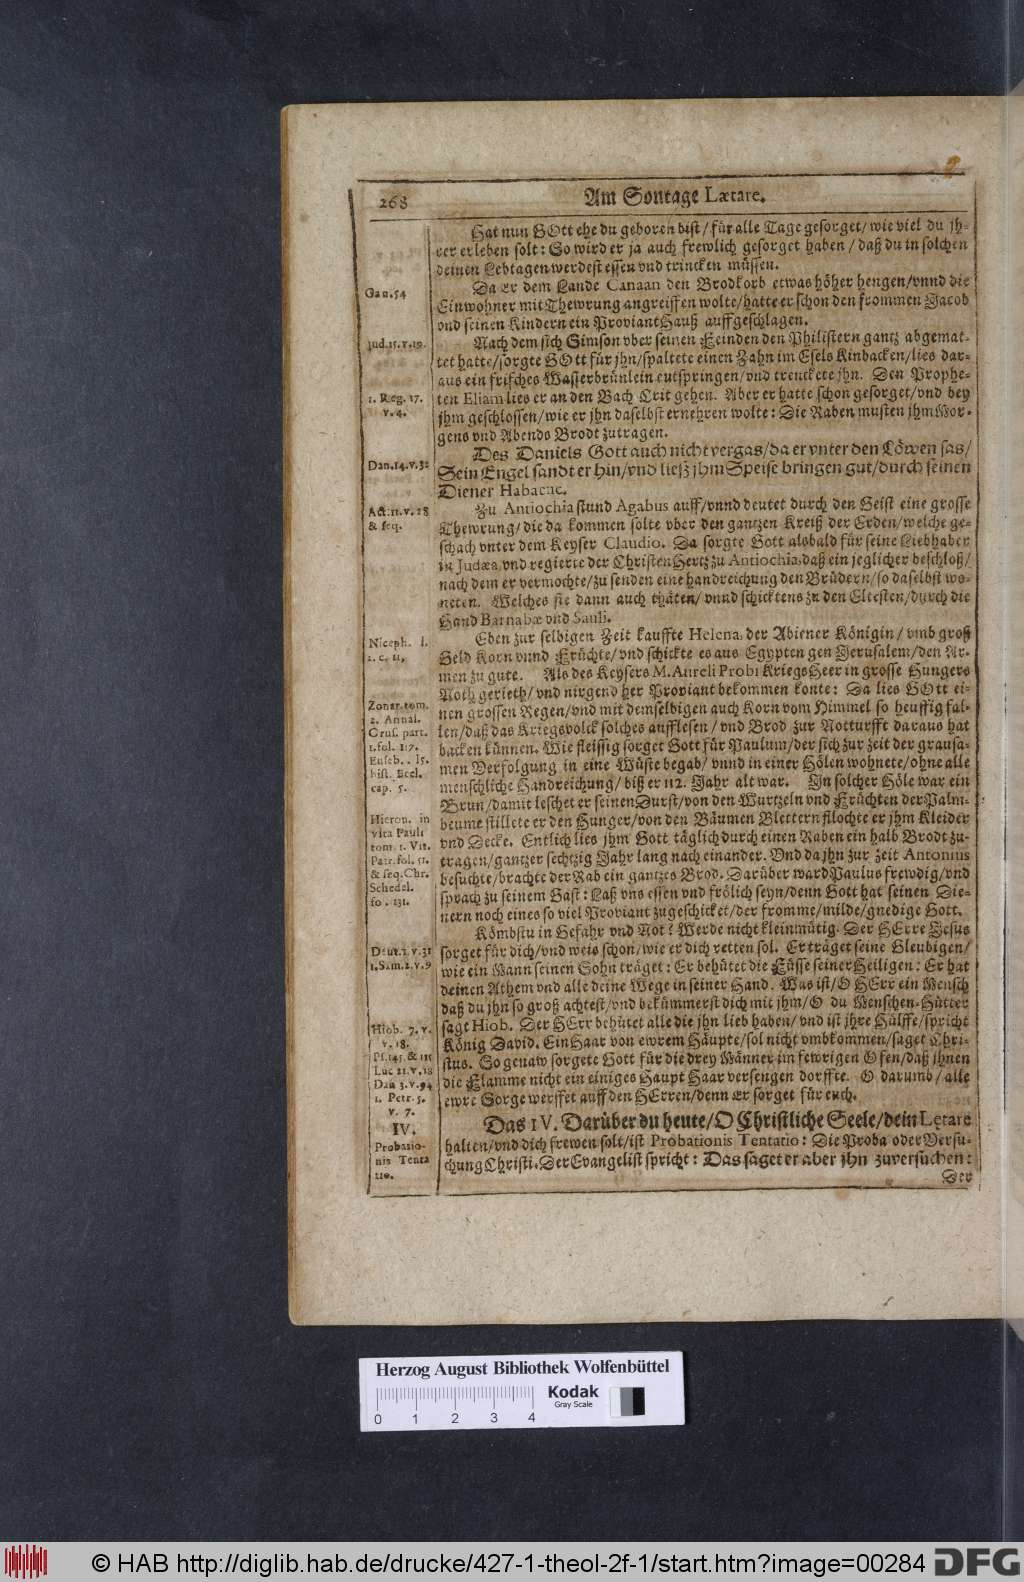 268
Am Sontage Lætare.
Hat nun GOtt ehe du geboren bist/ für alle Tage gesorget/ wie viel du jh-
rer erleben solt: So wird er ja auch frewlich gesorget haben / daß du in solchen
deinen Lebtagen werdest essen vnd trincken müssen.
Gen. 54
Da Er dem Lande Canaan den Brodkorb etwas höher hengen/ vnnd die
Einwohner mit Thewrung angreiffen wolte/ hatte er schon den frommen Jacob
vnd seinen Kindern ein Proviant Hauß auffgeschlagen.
Jud. 15. v. 19.
Nach dem sich Simson vber seinen Feinden den Philistern gantz abgemat-
tet hatte/ sorgte GOtt für jhn/ spaltete einen Zahn im Esels Kinbacken/ lies dar-
aus ein frisches Wasserbrünlein entspringen/ vnd trenckete jhn. Den Prophe-
1. Reg. 17.
v. 4.
ten Eliam lies er an den Bach Crit gehen. Aber er hatte schon gesorget/ vnd bey
jhm geschlossen/ wie er jhn daselbst ernehren wolte: Die Raben musten jhm Mor-
gens vnd Abends Brodt zutragen.
Dan. 14. v. 32
Des Daniels Gott auch nicht vergas/ da er vnter den Löwen sas/
Sein Engel sandt er hin/ vnd ließ jhm Speise bringen gut/ durch seinen
Diener Habacuc.
Act. 11. v. 28
& seq.
Zu Antiochia stund Agabus auff/ vnnd deutet durch den Geist eine grosse
Thewrung/ die da kommen solte vber den gantzen Kreiß der Erden/ welche ge-
schach vnter dem Keyser Claudio. Da sorgte Gott alsbald für seine Liebhaber
in Judæa vnd regierte der Christen Hertz zu Antiochia, daß ein jeglicher beschloß/
nach dem er vermochte/ zu senden eine handreichung den Brüdern/ so daselbst wo-
neten. Welches sie dann auch thäten/ vnnd schicktens zu den Eltesten/ durch die
Hand Barnabæ vnd Sauli.
Niceph. l.
2. c. 11,
Eben zur selbigen Zeit kauffte Helena, der Abiener Königin/ vmb groß
Geld Korn vnnd Früchte/ vnd schickte es aus Egypten gen Jerusalem/ den Ar-
men zu gute. Als des Keysers M. Aureli Probi KriegsHeer in grosse Hungers
Noth gerieth/ vnd nirgend her Proviant bekommen konte: Da lies GOtt ei-
Zonar. tom.
2. Annal.
Crus. part.
1. fol. 117.
nen grossen Regen/ vnd mit demselbigen auch Korn vom Himmel so heuffig fal-
len/ daß das Kriegsvolck solches aufflesen / vnd Brod zur Notturfft daraus hat
backen können. Wie fleissig sorget Gott für Paulum/ der sich zur zeit der grausa-
Euseb. l. 5.
hist. Eccl.
cap. 5.
men Verfolgung in eine Wüste begab/ vnnd in einer Hölen wohnete/ ohne alle
menschliche Handreichung/ biß er 112. Jahr alt war. In solcher Höle war ein
Brun/ damit leschet er seinen Durst/ von den Wurtzeln vnd Früchten der Palm-
Hieron. in
vita Pauli
tom. 1. Vit.
Patr. fol. 51.
& seq. Chr.
Schedel.
fo. 131.
beume stillete er den Hunger/ von den Bäumen Blettern flochte er jhm Kleider
vnd Decke. Entlich lies jhm Gott täglich durch einen Raben ein halb Brodt zu-
tragen/ gantzer sechtzig Jahr lang nach einander. Vnd da jhn zur zeit Antonius
besuchte/ brachte der Rab ein gantzes Brod. Darüber ward Paulus frewdig/ vnd
sprach zu seinem Gast: Laß vns essen vnd frölich seyn/ denn Gott hat seinen Die-
nern noch eines so viel Proviant zugeschicket/ der fromme/ milde/ gnedige Gott.
Kömbstu in Gefahr vnd Not? Werde nicht kleinmütig. Der HErre Jesus
Deut. 1. v. 31
1. Sam. 2. v. 9
sorget für dich/ vnd weis schon/ wie er dich retten sol. Er träget seine Gleubigen/
wie ein Mann seinen Sohn träget: Er behütet die Füsse seiner Heiligen: Er hat
deinen Athem vnd alle deine Wege in seiner Hand. Was ist/ O HErr ein Mensch
daß du jhn so groß achtest/ vnd bekümmerst dich mit jhm/ O du Menschen-Hütter
Hiob. 7. v.
v. 18.
Ps. 145. & 121
Luc 21. v. 18
Dan 3. v. 94
1. Petr. 5.
v. 7.
sagt Hiob. Der HErr behütet alle die jhn lieb haben/ vnd ist jhre Hülffe/ spricht
König David. Ein Haar von ewrem Häupte/ sol nicht vmbkommen/ saget Chri-
stus. So genaw sorgete Gott für die drey Männer im fewrigen Ofen/ daß jhnen
die Flamme nicht ein einiges Haupt Haar versengen dorffte. O darumb / alle
ewre Sorge werffet auff den HErren/ denn Er sorget für euch.
IV.
Probatio-
nis Tenta
tio.
Das IV. Darüber du heute/ O Christliche Seele/ dein Lętare
halten/ vnd dich frewen solt/ ist Probationis Tentatio: Die Proba oder Versu-
chung Christi. Der Evangelist spricht: Das saget er aber jhn zuversuchen:
Der
Herzog August Bibliothek Wolfenbüttel
0 1 2 3 4
Kodak
Gray Scale
© HAB http://diglib.hab.de/drucke/427-1-theol-2f-1/start.htm?image=00284
DFG